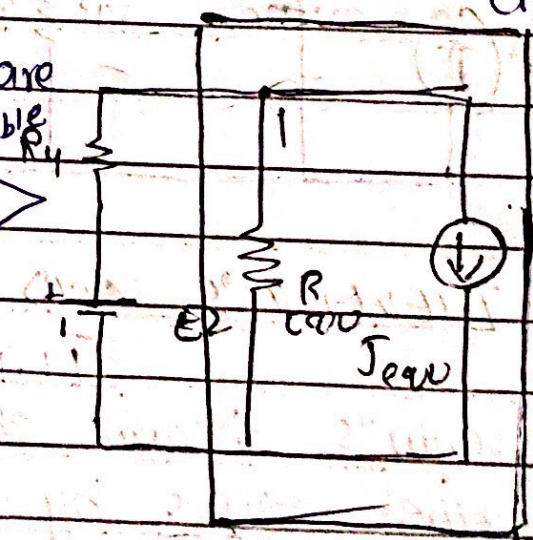 are
ble
R4
1
+
E2
R
equ
Jequ